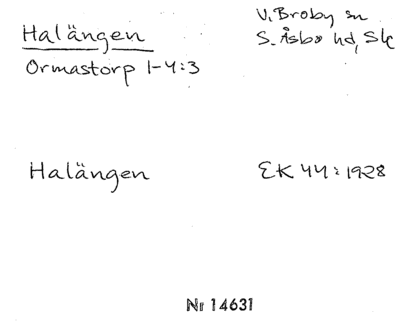 Halängen
V. Broby sn
Ormastorp 1-4:3
S. Åsbo hd, Sk
Halängen
EK 44:1928
Nr 14631